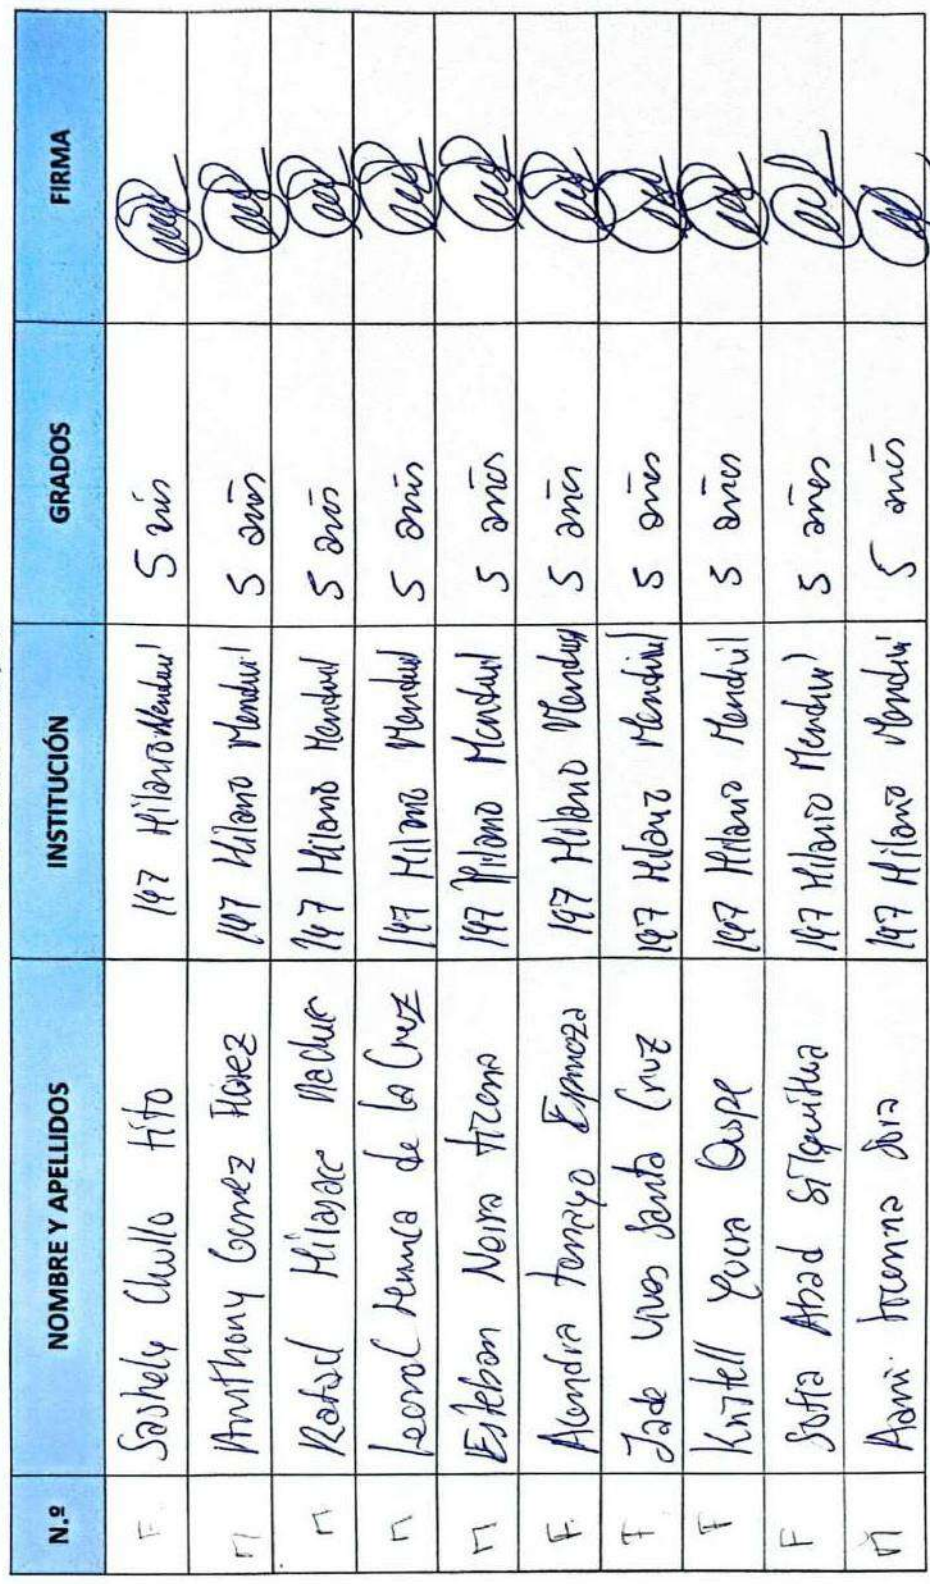 N.º NOMBRE Y APELLIDOS INSTITUCIÓN GRADOS FIRMA
F. Sashely Chullo tito 147 Hilario Mendivil 5 años
M Anthony Gomez Florez 147 Hilario Mendivil 5 años
M Rafael 147 Hilario Mendivil 5 años
M Leonel de La Cruz 147 Hilario Mendivil 5 años
M Esteban Neira Ticona 147 Hilario Mendivil 5 años
F. Alendra Tamayo Espinoza 147 Hilario Mendivil 5 años
F Jade Vivas Santa Cruz 147 Hilario Mendivil 5 años
F Kristell Yucra Quspe 147 Hilario Mendivil 5 años
F Sofia Abad 147 Hilario Mendivil 5 años
M 147 Hilario Mendivil 5 años